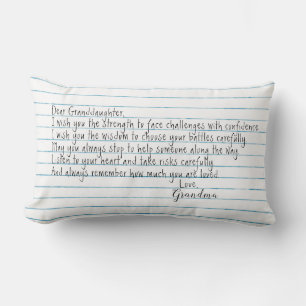 Dear Granddaughter,
I wish you the strength to face challenges with confidence
I wish you the wisdom to choose your battles carefully
May you always stop to help someone along the way
Listen to your heart and take risks carefully
And always remember how much you are loved
Love,
Grandma